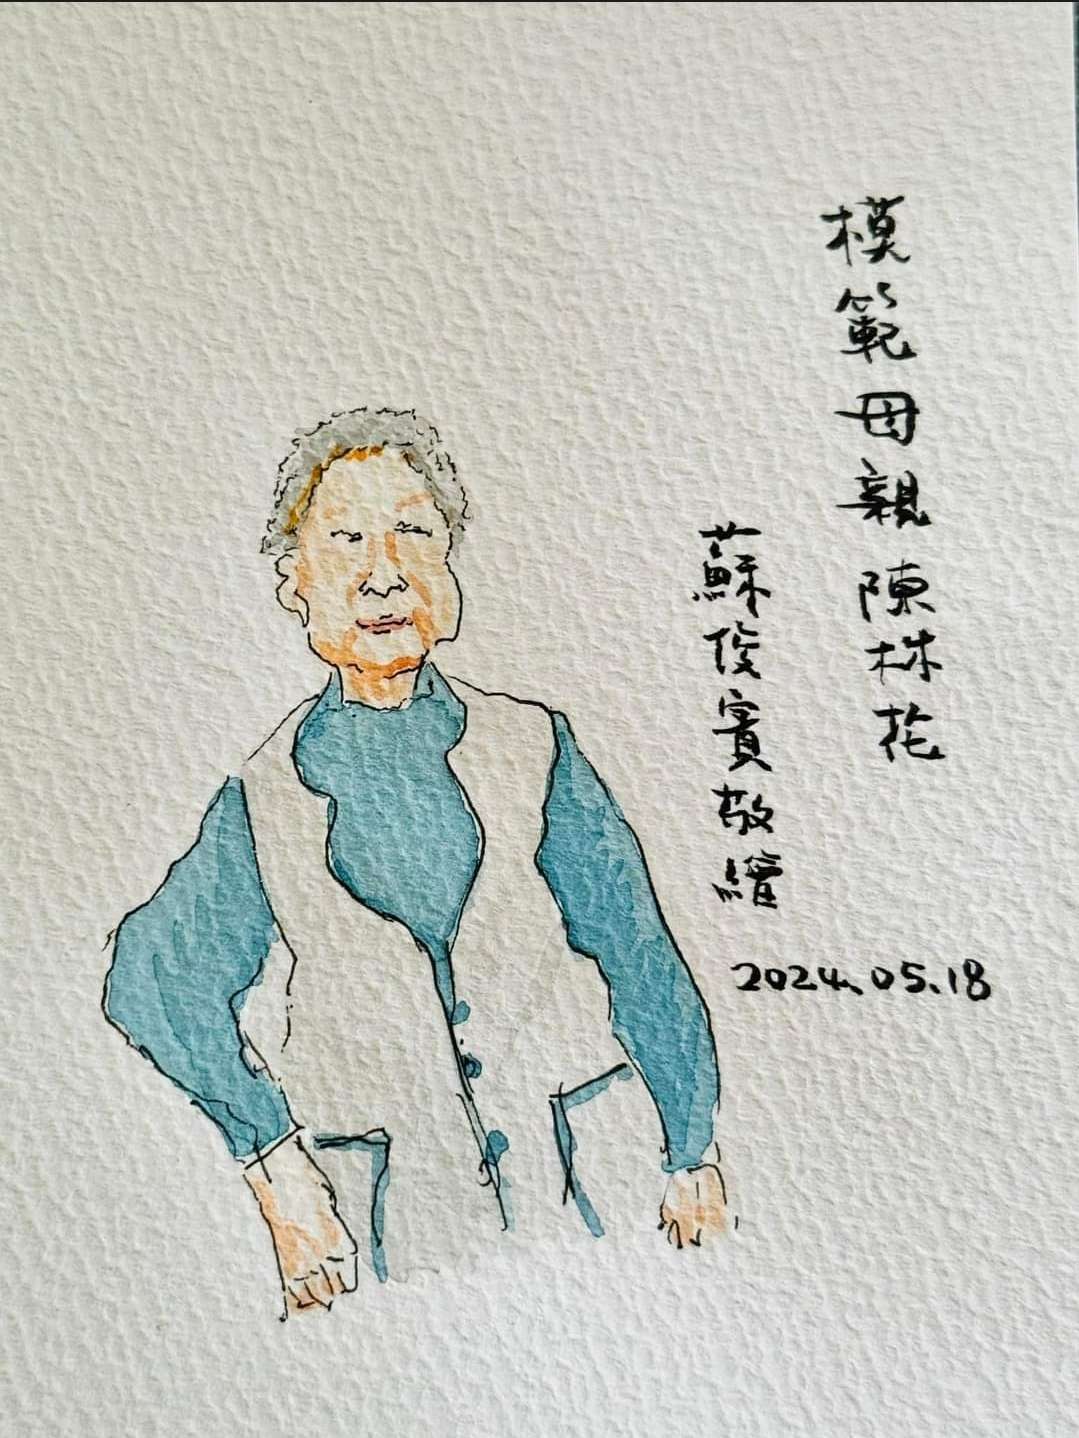 模範母親陳林花
蘇俊賓敬繪
2024.05.18